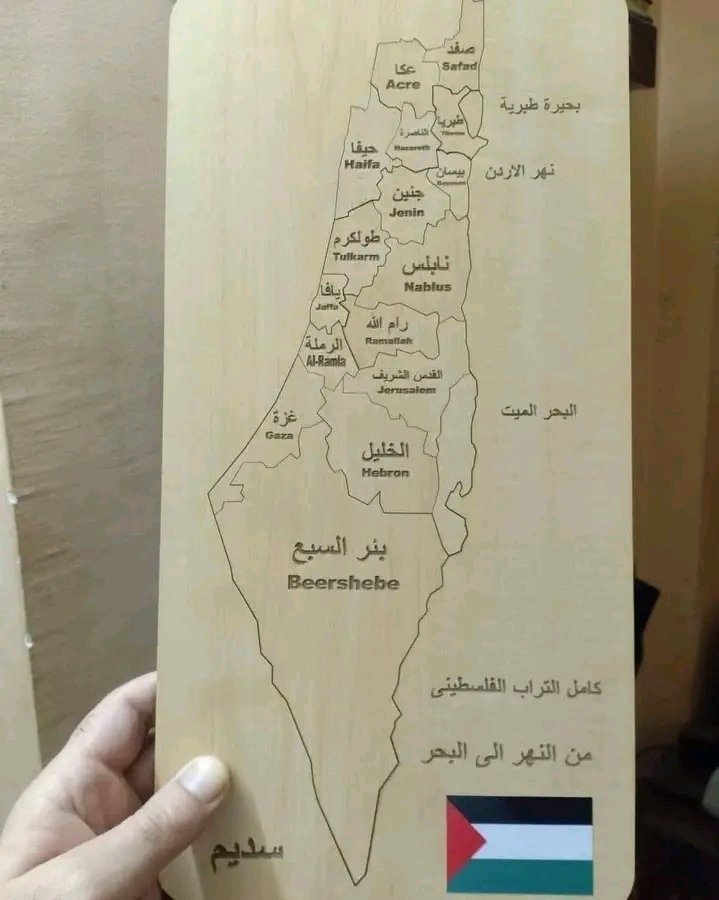 صفد
Safad
عكا
Acre
بحيرة طبرية
طبريا
Tiberias
الناصرة
Nazareth
حيفا
Haifa
بيسان
نهر الاردن
جنين
Jenin
طولكرم
Tulkarm
نابلس
Nablus
يافا
Jaffa
رام الله
Ramallah
الرملة
Al-Ramla
القدس الشريف
Jerusalem
البحر الميت
غزة
Gaza
الخليل
Hebron
بئر السبع
Beershebe
كامل التراب الفلسطينى
من النهر الى البحر
سديم